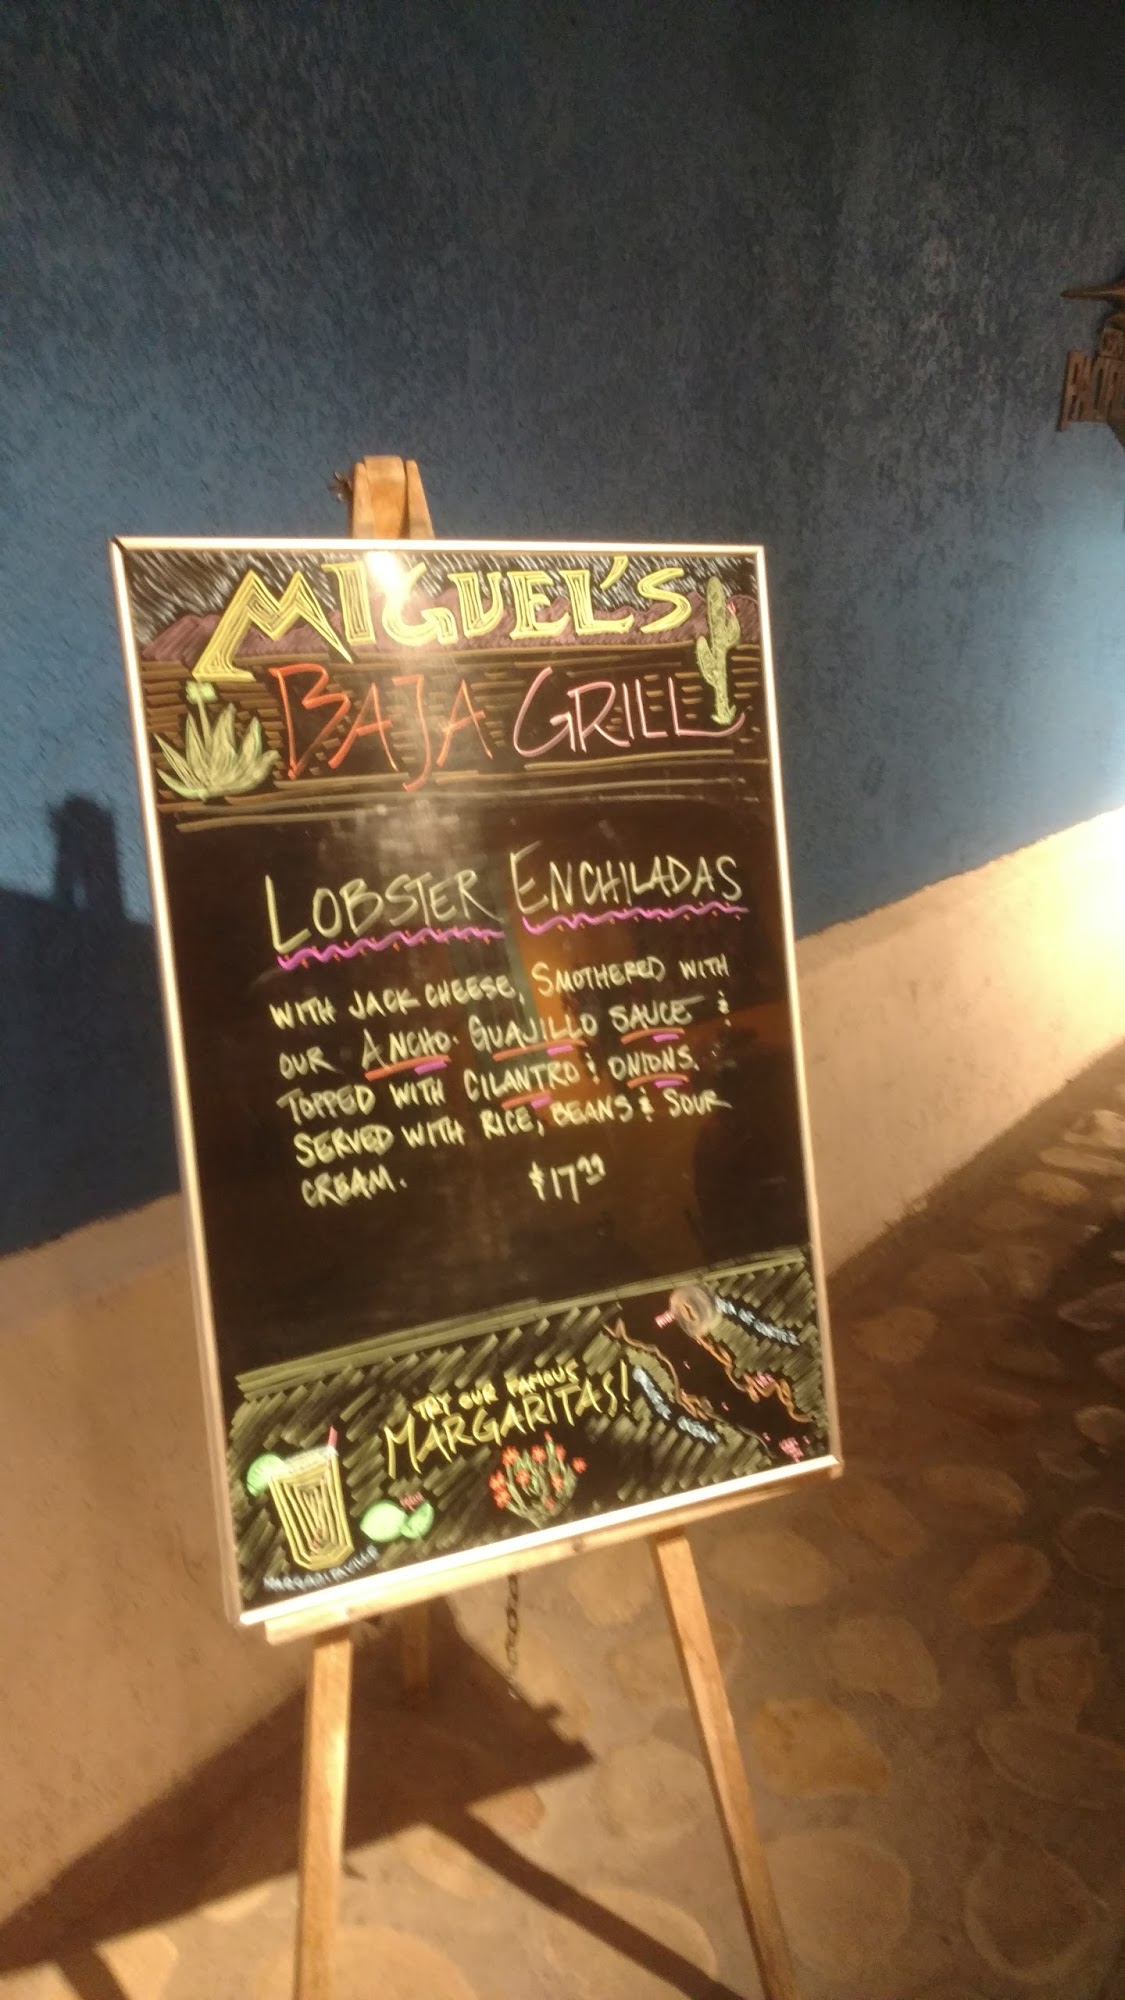 MIGUEL'S
BAJA GRILL
LOBSTER ENCHILADAS
WITH JACK CHEESE, SMOTHERED WITH
OUR ANCHO. GUAJILLO SAUCE &
TOPPED WITH CILANTRO & ONIONS.
SERVED WITH RICE, BEANS & SOUR
CREAM. $17.99
TRY OUR FAMOUS
MARGARITAS!
SEA OF CORTEZ
MARGARITAVILLE